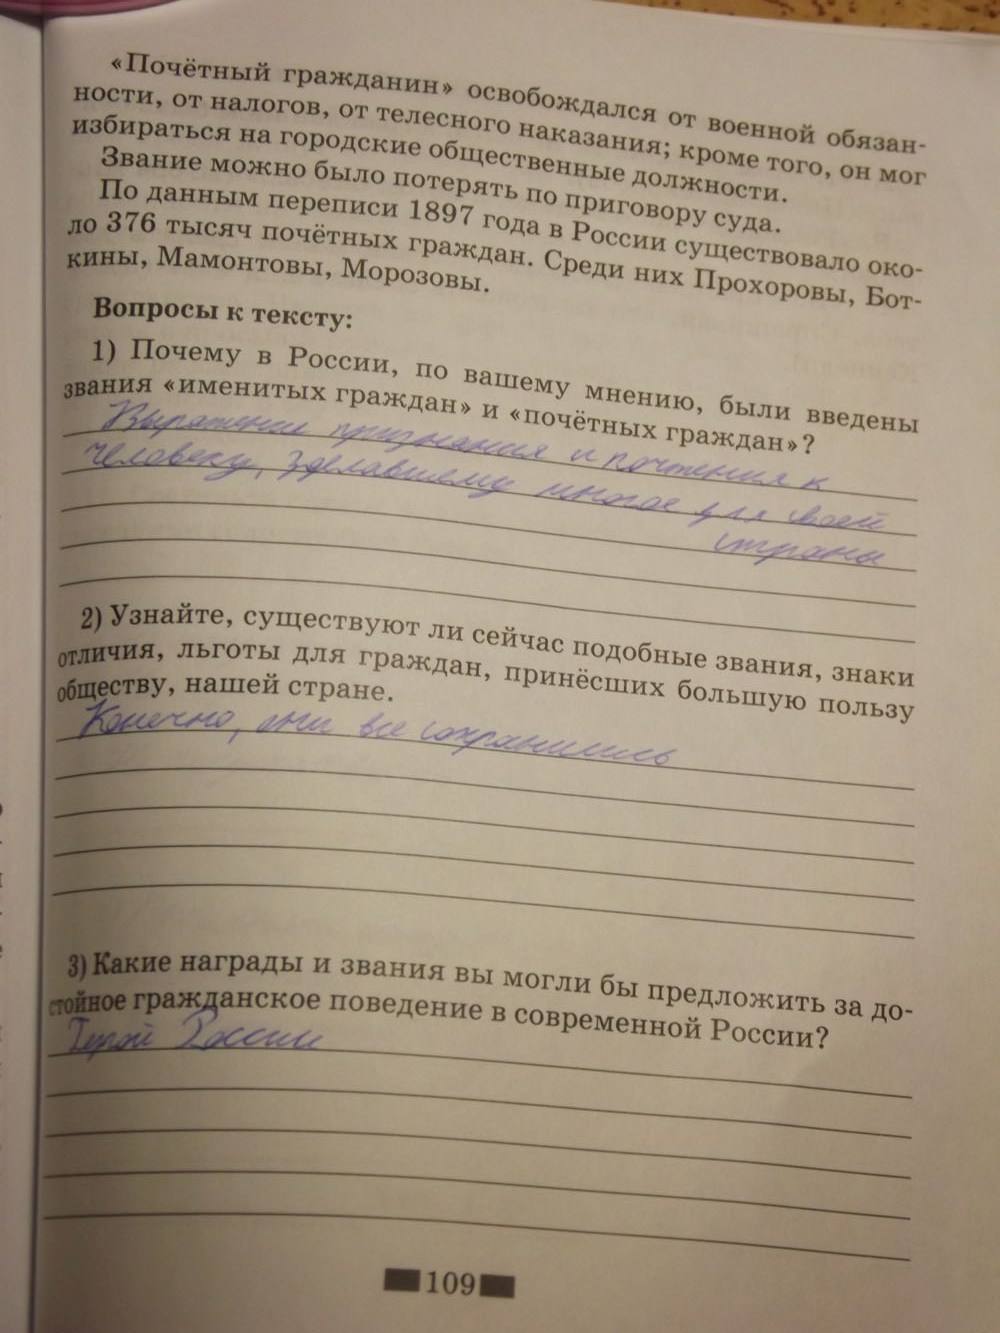 «Почётный гражданин» освобождался от военной обязан-
ности, от налогов, от телесного наказания; кроме того, он мог
избираться на городские общественные должности.
Звание можно было потерять по приговору суда.
По данным переписи 1897 года в России существовало око-
ло 376 тысяч почётных граждан. Среди них Прохоровы, Бот-
кины, Мамонтовы, Морозовы.
Вопросы к тексту:
1) Почему в России, по вашему мнению, были введены
звания «именитых граждан» и «почётных граждан»?
Выражении признания и почтения к
человеку, зделавшему многое для своей
страны
2) Узнайте, существуют ли сейчас подобные звания, знаки
отличия, льготы для граждан, принёсших большую пользу
обществу, нашей стране.
Конечно, они все сохранились
3) Какие награды и звания вы могли бы предложить за до-
стойное гражданское поведение в современной России?
Герой России
109